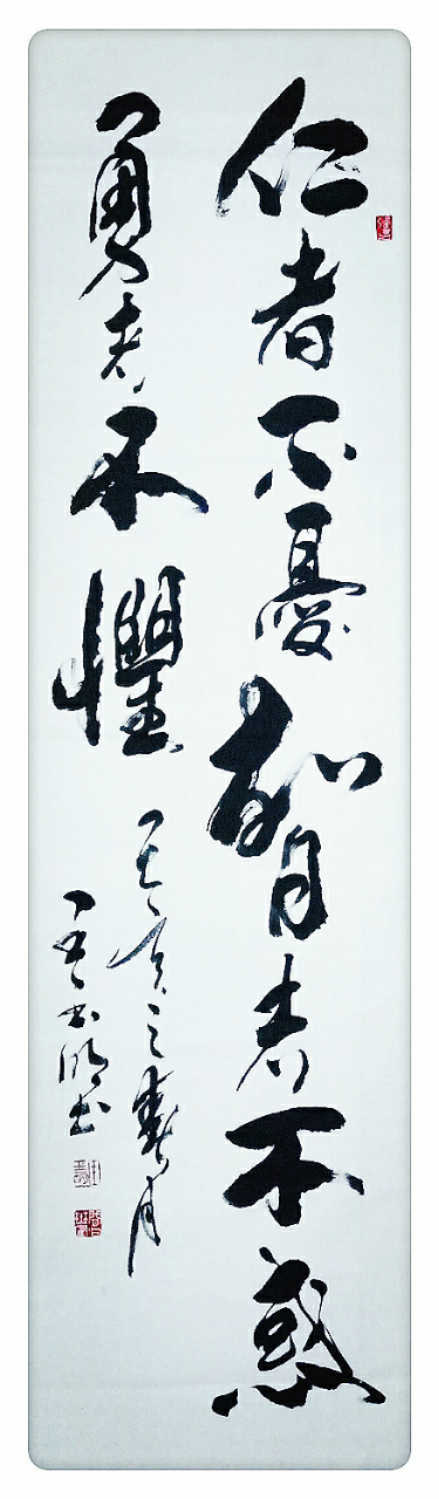 仁者不憂智者不惑
勇者不懼
亥之春月